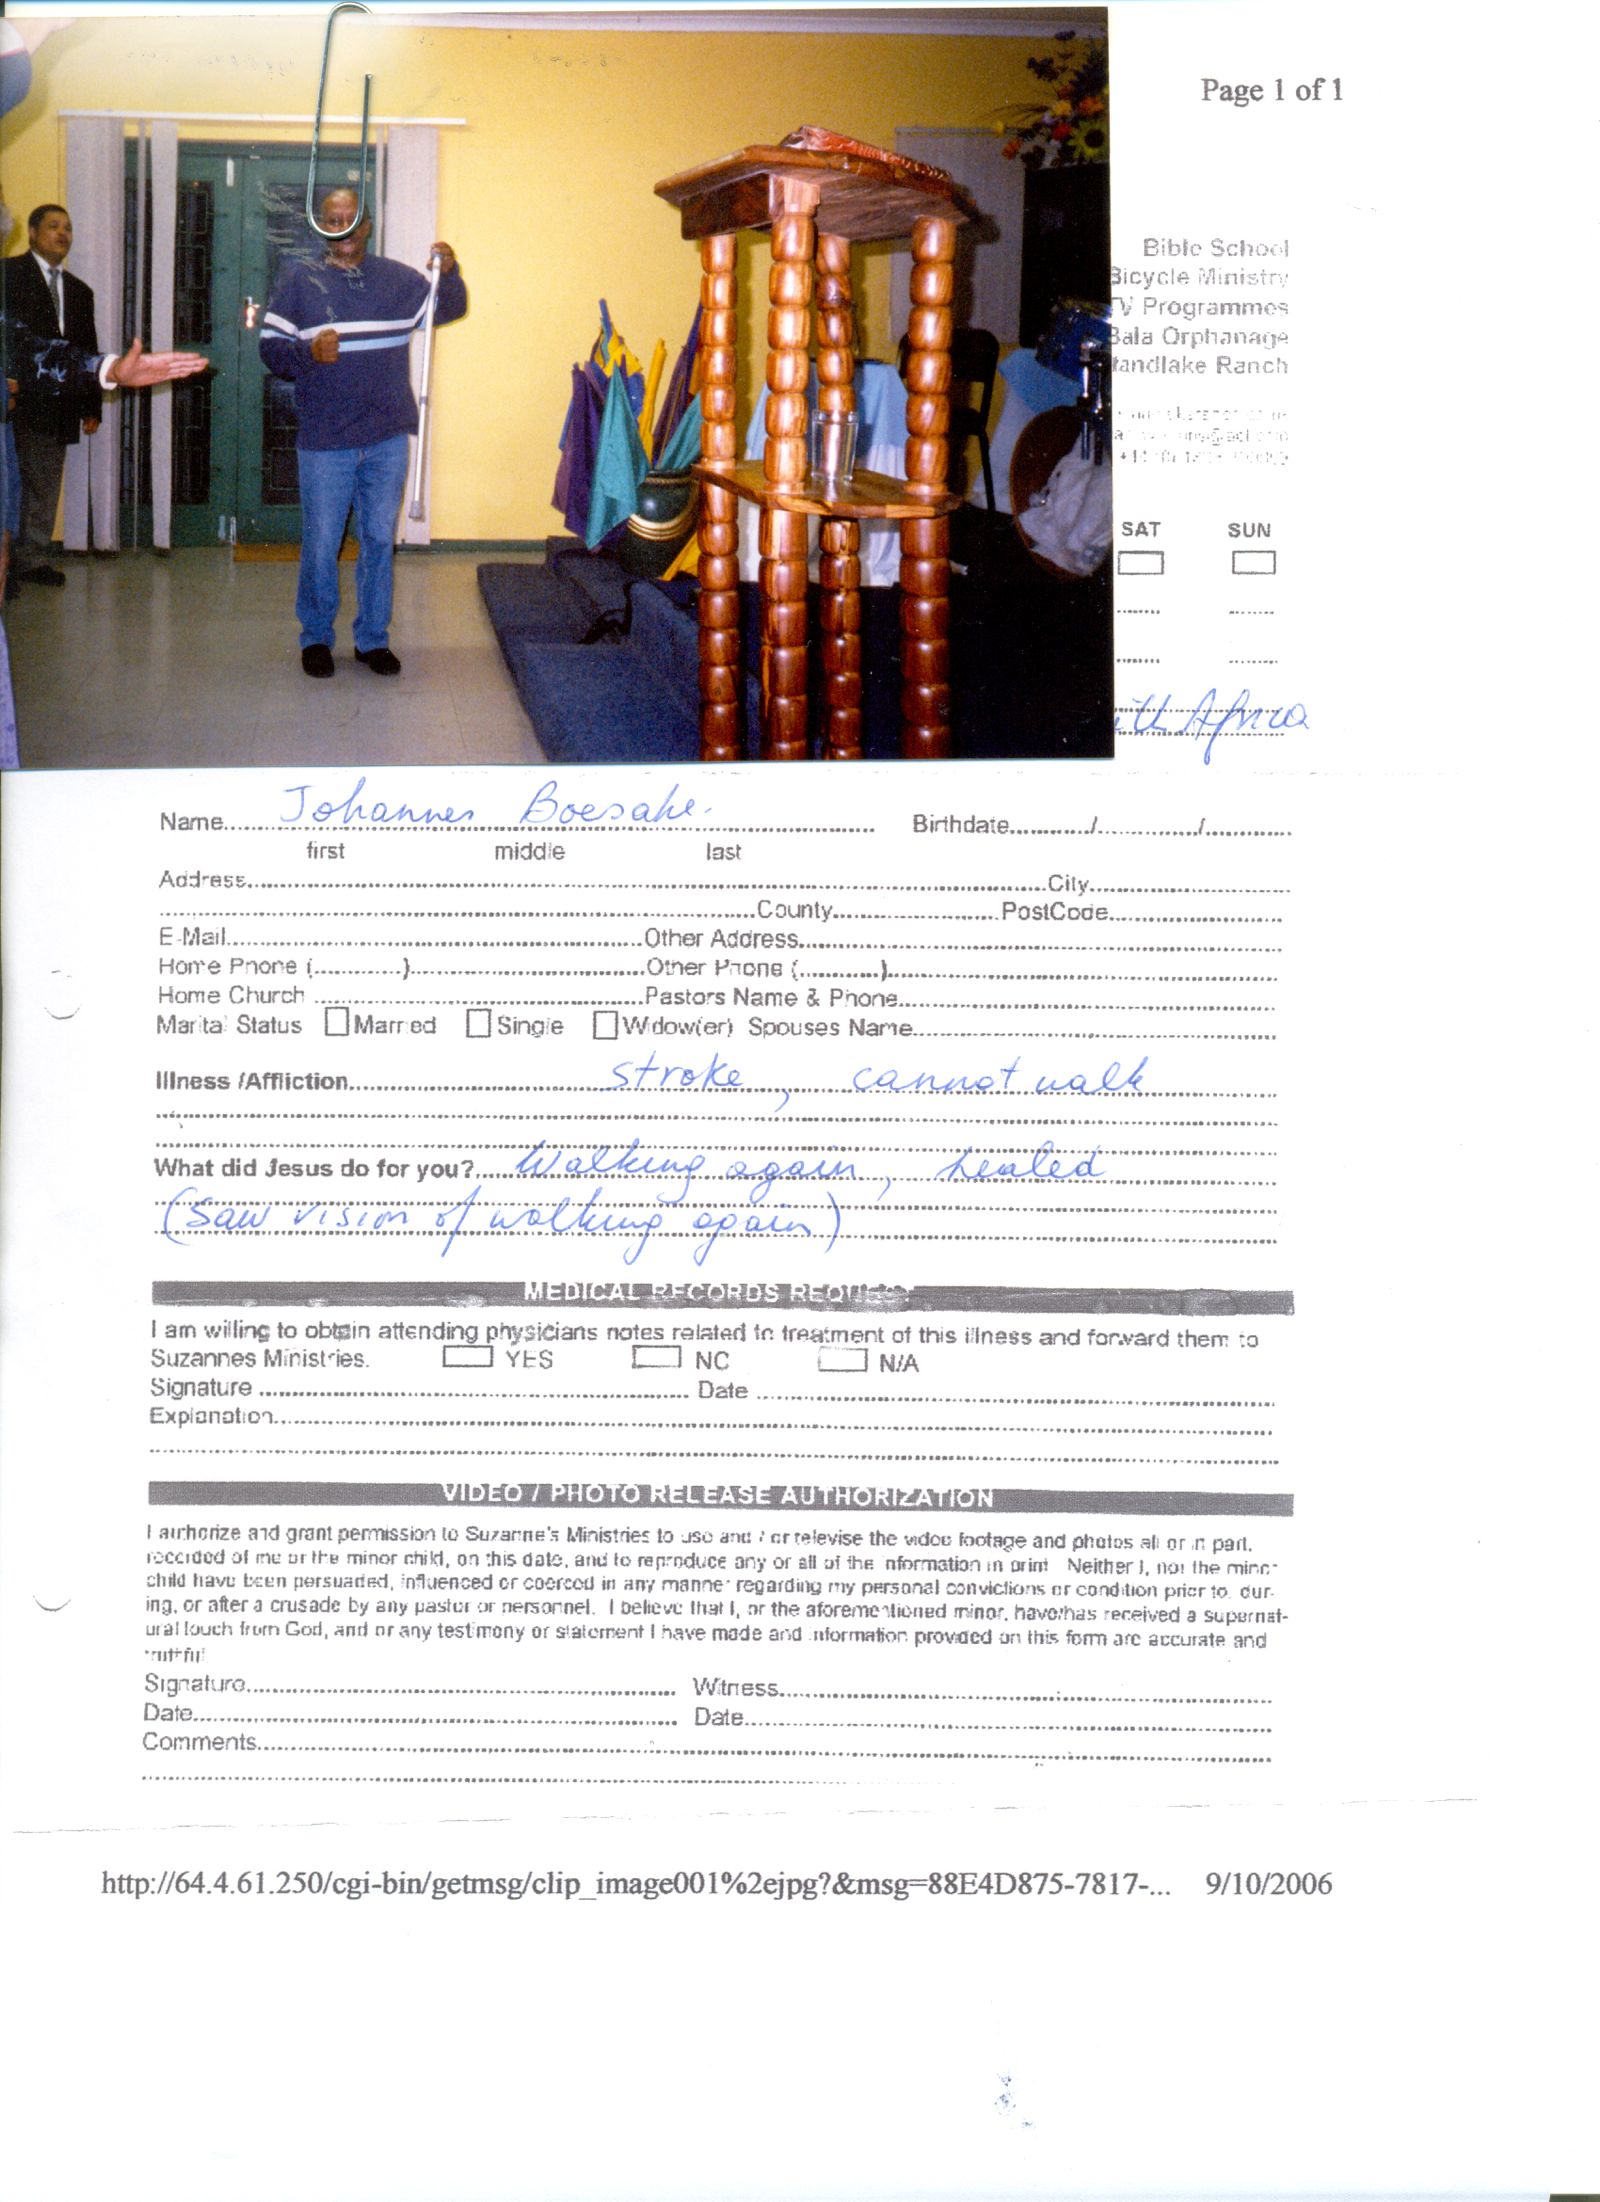 Page 1 of 1
Bible School
Bicycle Ministry
TV Programmes
Bala Orphanage
andlake Ranch
SAT SUN
Africa
Name Johannes Boesake.
Birthdate / /
first middle last
Address City
County PostCode
E-Mail Other Address
Home Phone ( ) Other Phone ( )
Home Church Pastors Name & Phone
Marital Status Married Single Widow(er) Spouses Name
Illness /Affliction stroke, cannot walk
What did Jesus do for you? Walking again, healed
(Saw vision of walking again)
MEDICAL RECORDS REQUEST
I am willing to obtain attending physicians notes related to treatment of this illness and forward them to
Suzannes Ministries. YES NO N/A
Signature Date
Explanation
VIDEO / PHOTO RELEASE AUTHORIZATION
I authorize and grant permission to Suzanne's Ministries to use and / or televise the video footage and photos all or in part,
recorded of me or the minor child, on this date, and to reproduce any or all of the information in print Neither I, nor the minor
child have been persuaded, influenced or coerced in any manner regarding my personal convictions or condition prior to, dur-
ing, or after a crusade by any pastor or personnel. I believe that I, or the aforementioned minor, have/has received a supernat-
ural touch from God, and or any testimony or statement I have made and information provided on this form are accurate and
truthful
Signature Witness
Date Date
Comments
http://64.4.61.250/cgi-bin/getmsg/clip_image001%2ejpg?&msg=88E4D875-7817-... 9/10/2006